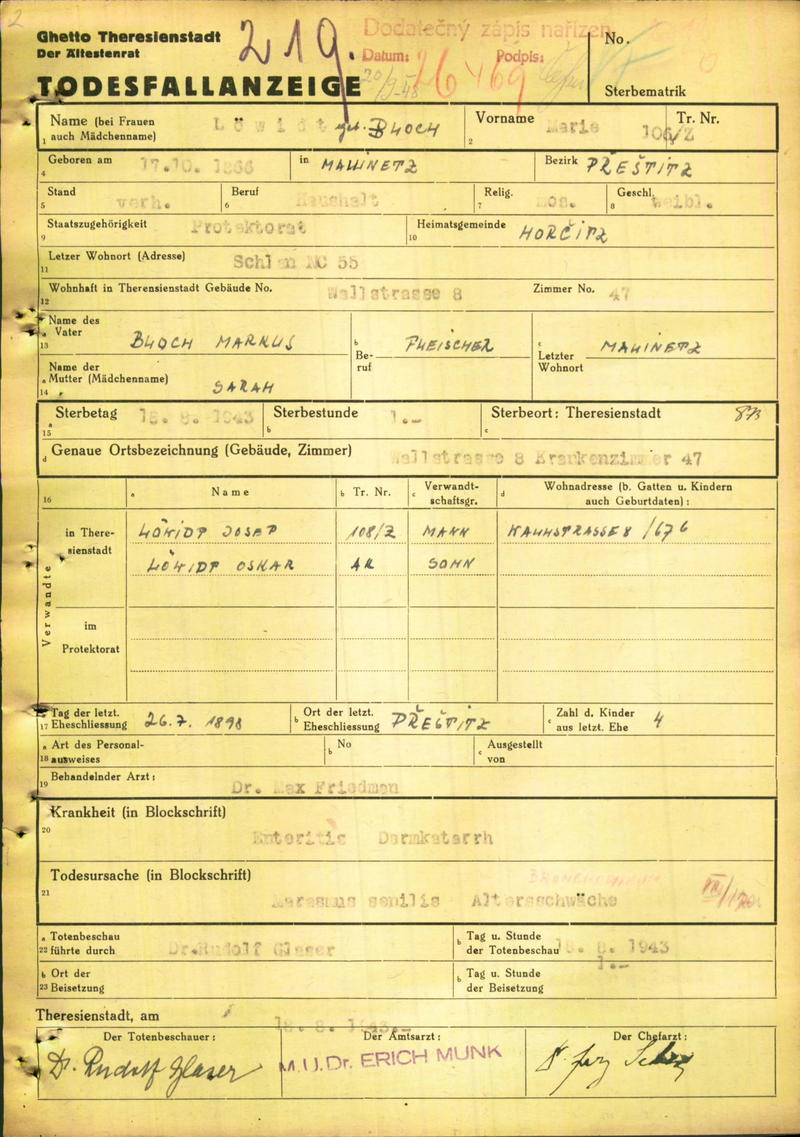 2
Ghetto Theresienstadt
Der Ältestenrat
TODESFALLANZEIGE
219.
Dodatečný zápis nařízen
Datum: Podpis:
No.
Sterbematrik
Name (bei Frauen auch Mädchenname) Löwidt BLOCH
1
Vorname Marie
2
Tr. Nr.
Geboren am 17.10. in MALLINETZ Bezirk PŘEŠTITZ
4
Stand verh. Beruf Haushalt Relig. mos. Geschl. weibl.
5 6 7 8
Staatszugehörigkeit Protektorat Heimatsgemeinde HORČITZ
9 10
Letzer Wohnort (Adresse) 55
11
Wohnhaft in Theresienstadt Gebäude No. Wallstrasse 8 Zimmer No. 47
12
Name des Vater BLOCH MARKUS b Beruf FLEISCHER c Letzter Wohnort MALINETZ
13
Name der Mutter (Mädchenname) SARAH
a 14
Sterbetag 8. 1943 Sterbestunde 1.- Sterbeort: Theresienstadt
a 15 b c
d Genaue Ortsbezeichnung (Gebäude, Zimmer) Wallstrasse 8 Krankenzimmer 47
16 a Name b Tr. Nr. c Verwandtschaftsgr. d Wohnadresse (b. Gatten u. Kindern auch Geburtdaten):
Verwandte
in Theresienstadt LÖWIDT JOSEF 108/Z MANN WALLSTRASSE 8
LÖWIDT OSKAR AK SOHN
im Protektorat
Tag der letzt. Eheschliessung 26.7. 1898 b Ort der letzt. Eheschliessung PŘEŠTITZ c Zahl d. Kinder aus letzt. Ehe 4
17
a Art des Personalausweises b No c Ausgestellt von
18
19 Behandelnder Arzt: Dr. Max Friedman
Krankheit (in Blockschrift)
20
Enteritis Darmkatarrh
Todesursache (in Blockschrift)
21
Marasmus senilis Altersschwäche
a Totenbeschau führte durch Dr. Rudolf Glaser b Tag u. Stunde der Totenbeschau 8. 1943
22
1.-
b Ort der Beisetzung b Tag u. Stunde der Beisetzung
23
Theresienstadt, am 8. 1943
Der Totenbeschauer: Der Amtsarzt: Der Chefarzt:
Dr. Rudolf Glaser M.U.Dr. ERICH MUNK